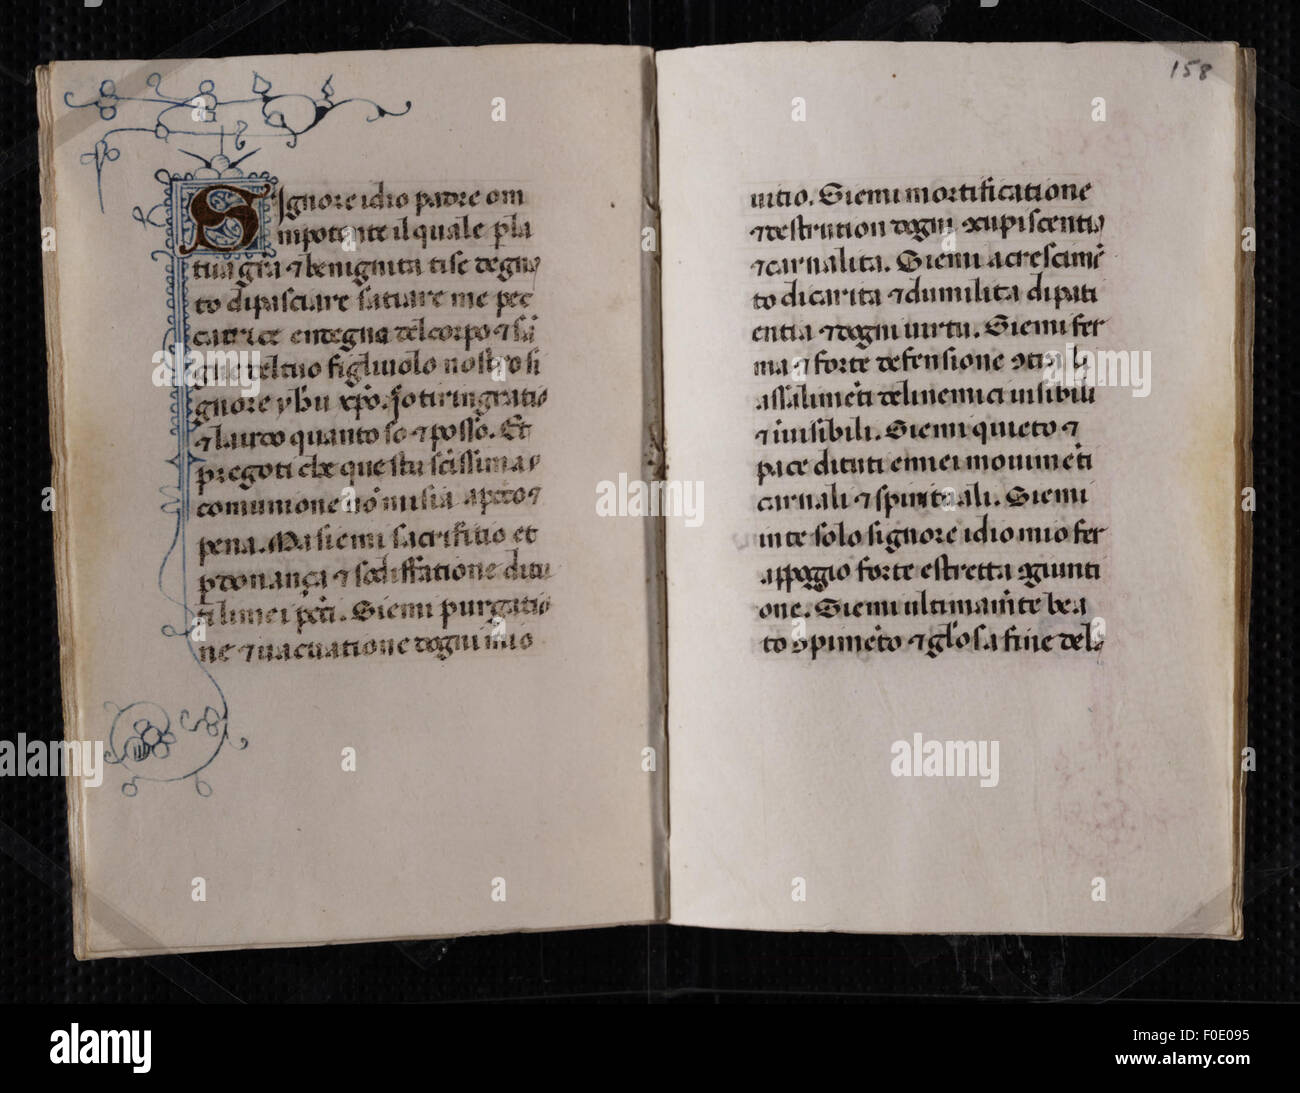 158
SIgnore idio padre om
nipotente il quale p̱ la
tua gr̃a ⁊ benignita ti se degna
to di pasciare satiare me pec
catrice en degna del corpo ⁊ sã
gue del tuo figluiolo nostro si
gnore yh̃u xp̃o. Jo ti ringratio
⁊ laudo quanto so ⁊ posso. Et
pregoti che questa sc̃issima
comunione nõ mi sia a ⁊
pena. Ma siemi sacrifitio et
p̱donança ⁊ sodisfatione di tu
ti li miei pc̃ti. Siemi purgatio
ne ⁊ uacuatione dogni mio
uitio. Siemi mortificatione
⁊ destrution dogni ꝯcupiscentia
⁊ carnalita. Siemi acrescimẽ
to di carita ⁊ dumilita di pati
entia ⁊ dogni uirtu. Siemi fer
ma ⁊ forte defensione ꝯtra li
assalimẽti deli nemici uisibili
⁊ ĩuisibili. Siemi quieto ⁊
pace di tuti e miei mouimẽti
carnali ⁊ spirituali. Siemi
in te solo signore idio mio fer
appoggio forte e stretta ꝯgiunti
one. Siemi ultimam̃te bea
to ⁊ gl̃osa fine del
alamy
alamy
Image ID: F0E095
www.alamy.com